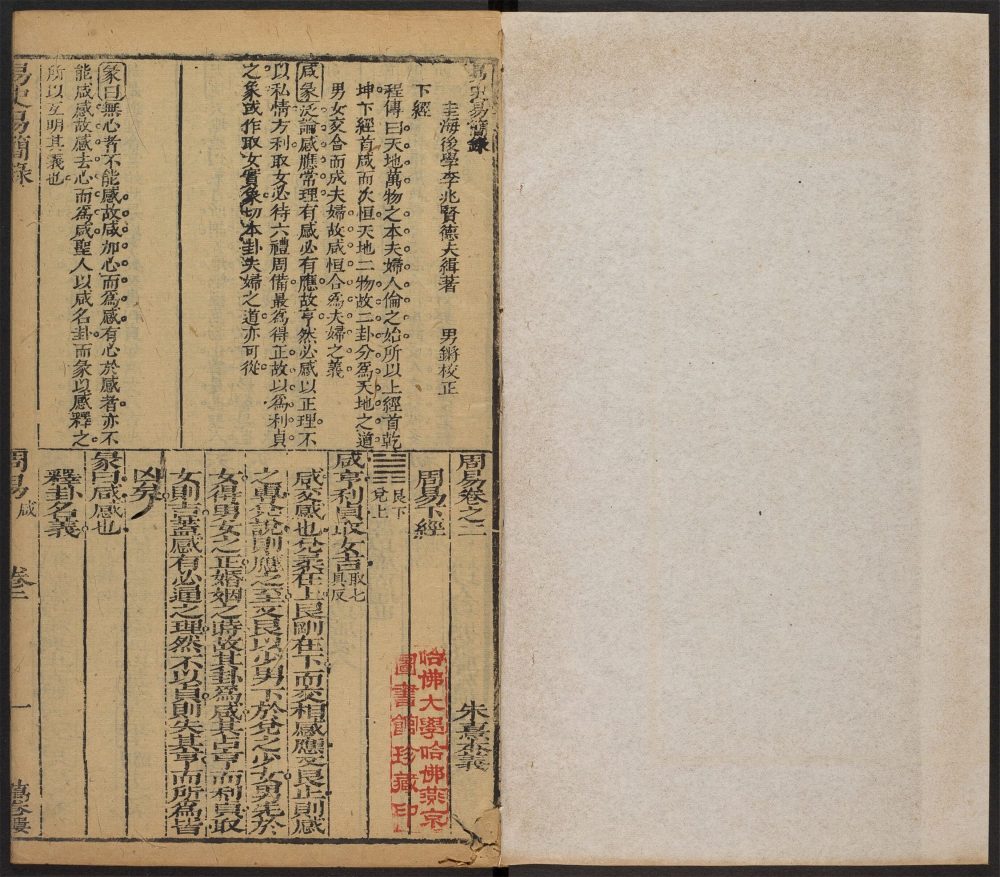 易史易簡錄
圭海後學李兆賢德夫緝著 男鏘校正
下經
程傳曰天地萬物之本夫婦人倫之始所以上經首乾
坤下經首咸而次恒天地二物故二卦分爲天地之道
男女交合而成夫婦故咸恒合爲夫婦之義
咸彖泛論感應常理有感必有應故亨然必感以正理不
以私情方利取女必待六禮周備最爲得正故以爲利貞
之象或作取女實象切本卦夫婦之道亦可從
彖曰無心者不能感故咸加心而爲感有心於感者亦不
能咸感故感去心而爲咸聖人以咸名卦而彖以感釋之
所以互明其義也
易史易簡錄
周易卷之二 朱熹本義
周易下經
艮下
兌上
咸亨利貞取女吉取七具反
咸交感也兌柔在上艮剛在下而交相感應又艮止則感
之專兌說則應之至又艮以少男下於兌之少女男先於
女得男女之正婚姻之時故其卦爲咸其占亨而利貞取
女則吉蓋感有必通之理然不以貞則失其亨而所爲皆
凶矣
彖曰咸感也
釋卦名義
周易 咸 卷二 一
哈佛大學哈佛燕京
圖書館珍藏印